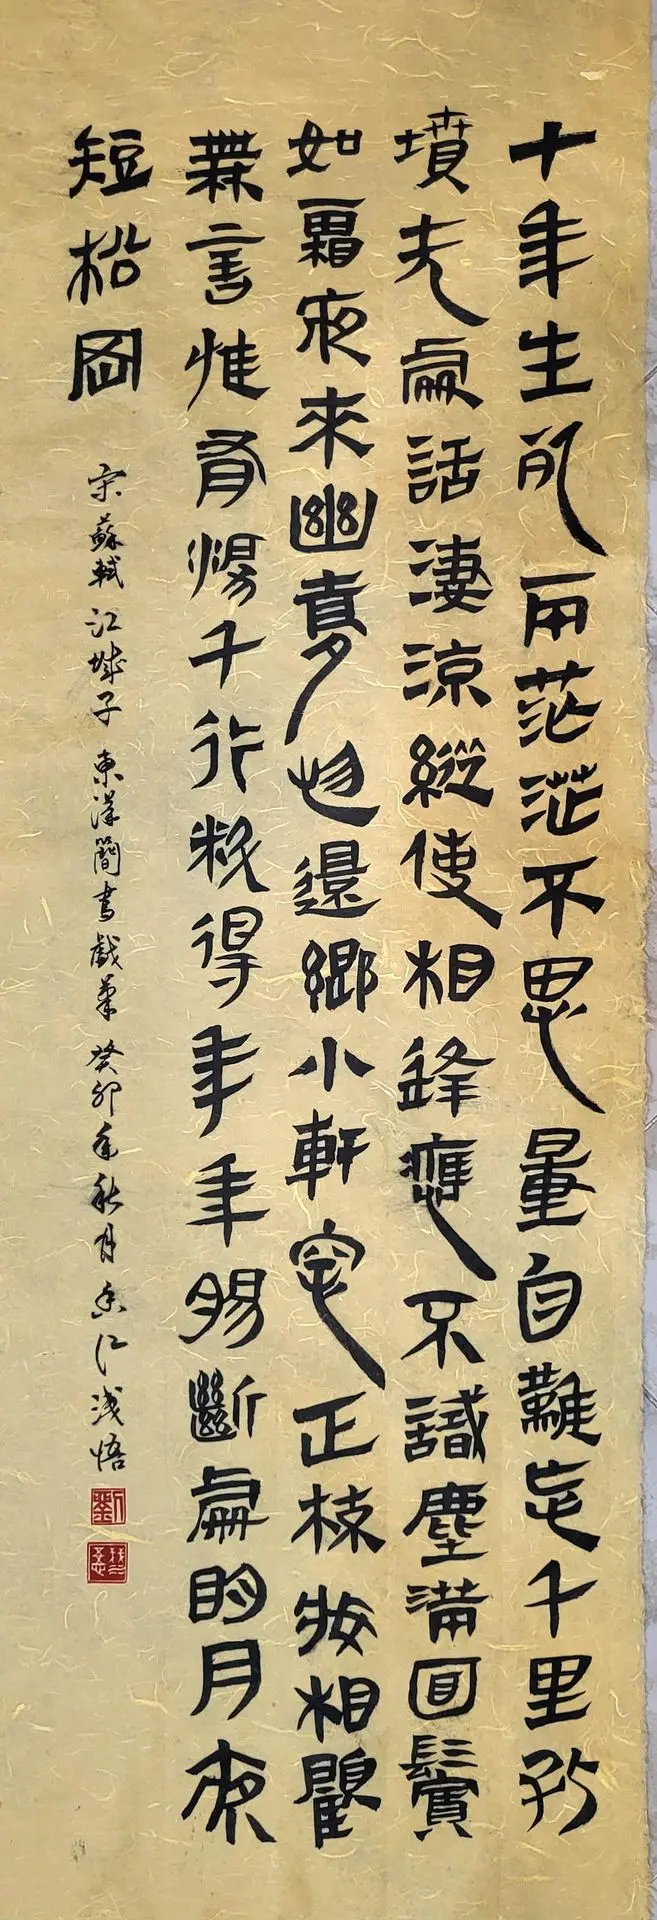 十年生死兩茫茫不思量自難忘千里孤
墳无處話淒涼縱使相逢應不識塵滿面鬢
如霜夜來幽夢忽還鄉小軒窗正梳妝相顧
無言惟有淚千行料得年年腸斷處明月夜
短松岡
宋蘇軾江城子東漢簡書戲筆癸卯年秋月香江淺悟